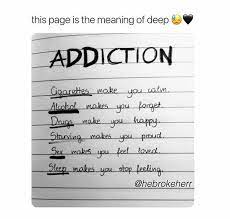 this page is the meaning of deep 🥺🖤
ADDICTION
Cigarettes make you calm.
Alcohol makes you forget.
Drugs make you happy.
Starving makes you proud.
Sex makes you feel loved.
Sleep makes you stop feeling.
@hebrokeherr